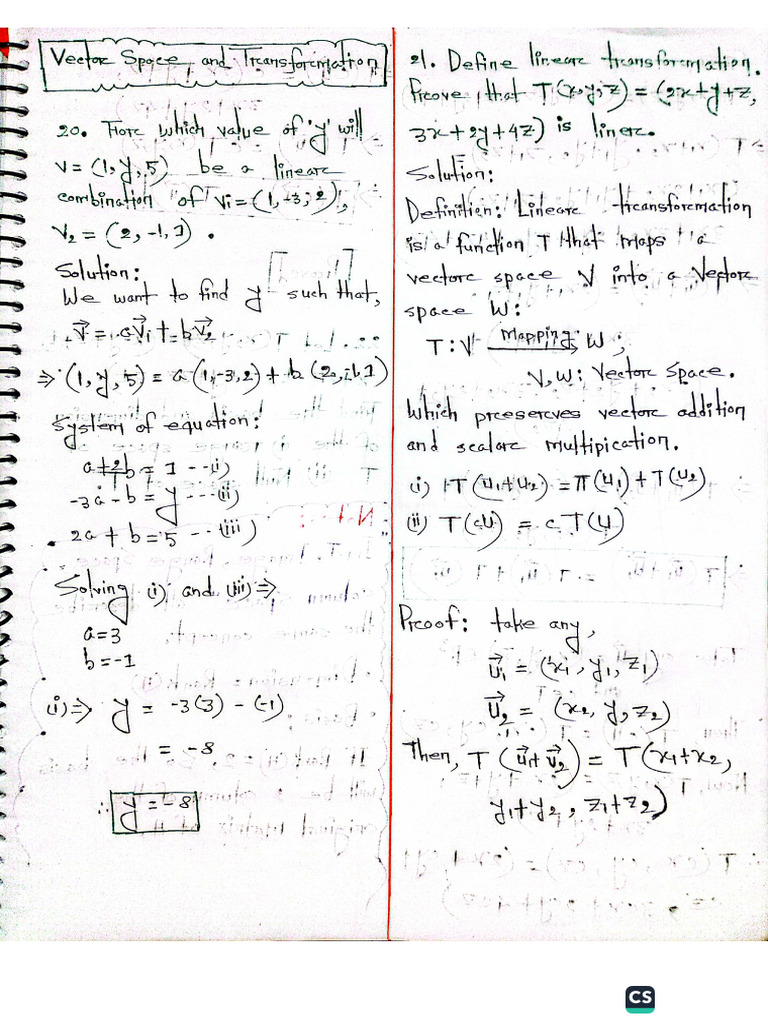 Vector Space and Transformation
20. For which value of 'y' will
v = (1, y, 5) be a linear
combination of v₁ = (1, -3, 2),
v₂ = (2, -1, 1).
Solution:
We want to find y such that,
v⃗ = av⃗₁ + bv⃗₂
⇒ (1, y, 5) = a(1, -3, 2) + b(2, -1, 1)
System of equation:
a + 2b = 1 --- (i)
-3a - b = y --- (ii)
2a + b = 5 --- (iii)
Solving (i) and (iii) ⇒
a = 3
b = -1
(i) ⇒ y = -3(3) - (-1)
= -8
∴ y = -8
21. Define linear transformation.
Prove that T(x, y, z) = (2x + y + z,
3x + 2y + 4z) is liner.
Solution:
Definition: Linear transformation
is a function T that maps a
vector space V into a Vector
space W:
T : V mapping → W ;
V, W : Vector Space.
Which preserves vector addition
and scalar multipication.
(i) T(u₁ + u₂) = T(u₁) + T(u₂)
(ii) T(cu) = c T(u)
Proof: take any,
u⃗₁ = (x₁, y₁, z₁)
u⃗₂ = (x₂, y, z₂)
Then, T(u⃗ + v⃗₂) = T(x₁ + x₂,
y₁ + y₂, z₁ + z₂)
CS